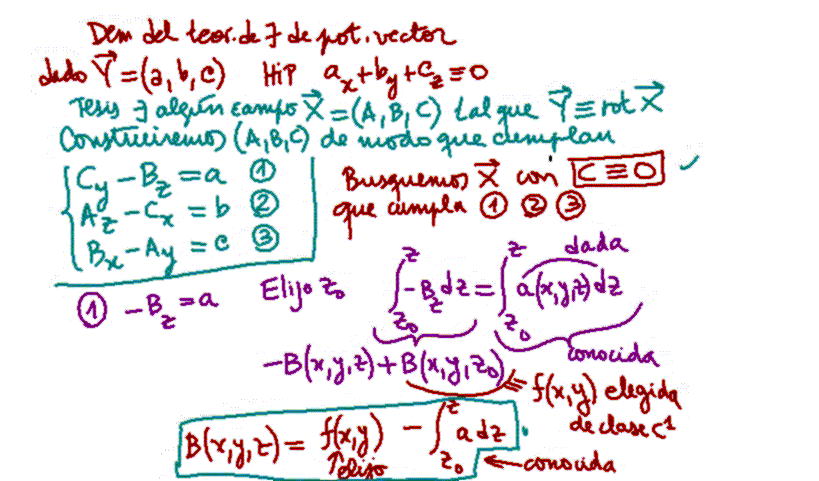 Dem del teor. de ∃ de pot. vector
dado Y⃗ = (a, b, c) HiP a_x + b_y + c_z ≡ 0
Tesis ∃ algún campo X⃗ = (A, B, C) tal que Y⃗ ≡ rot X⃗
Construiremos (A, B, C) de modo que cumplan
C_y − B_z = a ①
A_z − C_x = b ②
B_x − A_y = c ③
Busquemos X⃗ con C ≡ 0 ✓
que cumpla ① ② ③
① −B_z = a Elijo z₀ ∫_{z₀}^{z} −B_z dz = ∫_{z₀}^{z} a(x,y,z) dz
dada
conocida
−B(x,y,z) + B(x,y,z₀)
≡ f(x,y) elegida
de clase C¹
B(x,y,z) = f(x,y) − ∫_{z₀}^{z} a dz.
↑ elijo
← conocida